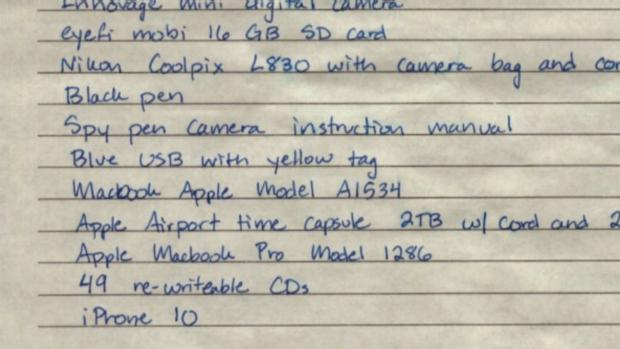 Innovage mini digital camera
eyefi mobi 16 GB SD card
Nikon Coolpix L830 with camera bag and
Black pen
Spy pen camera instruction manual
Blue USB with yellow tag
Macbook Apple Model A1534
Apple Airport time capsule 2TB w/ cord and 2
Apple Macbook Pro Model 1286
49 re-writeable CDs
iPhone 10